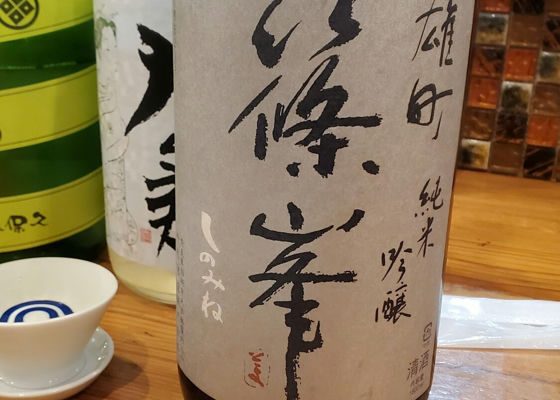 雄町
純米
吟醸
篠峯
しのみね
清酒
保久